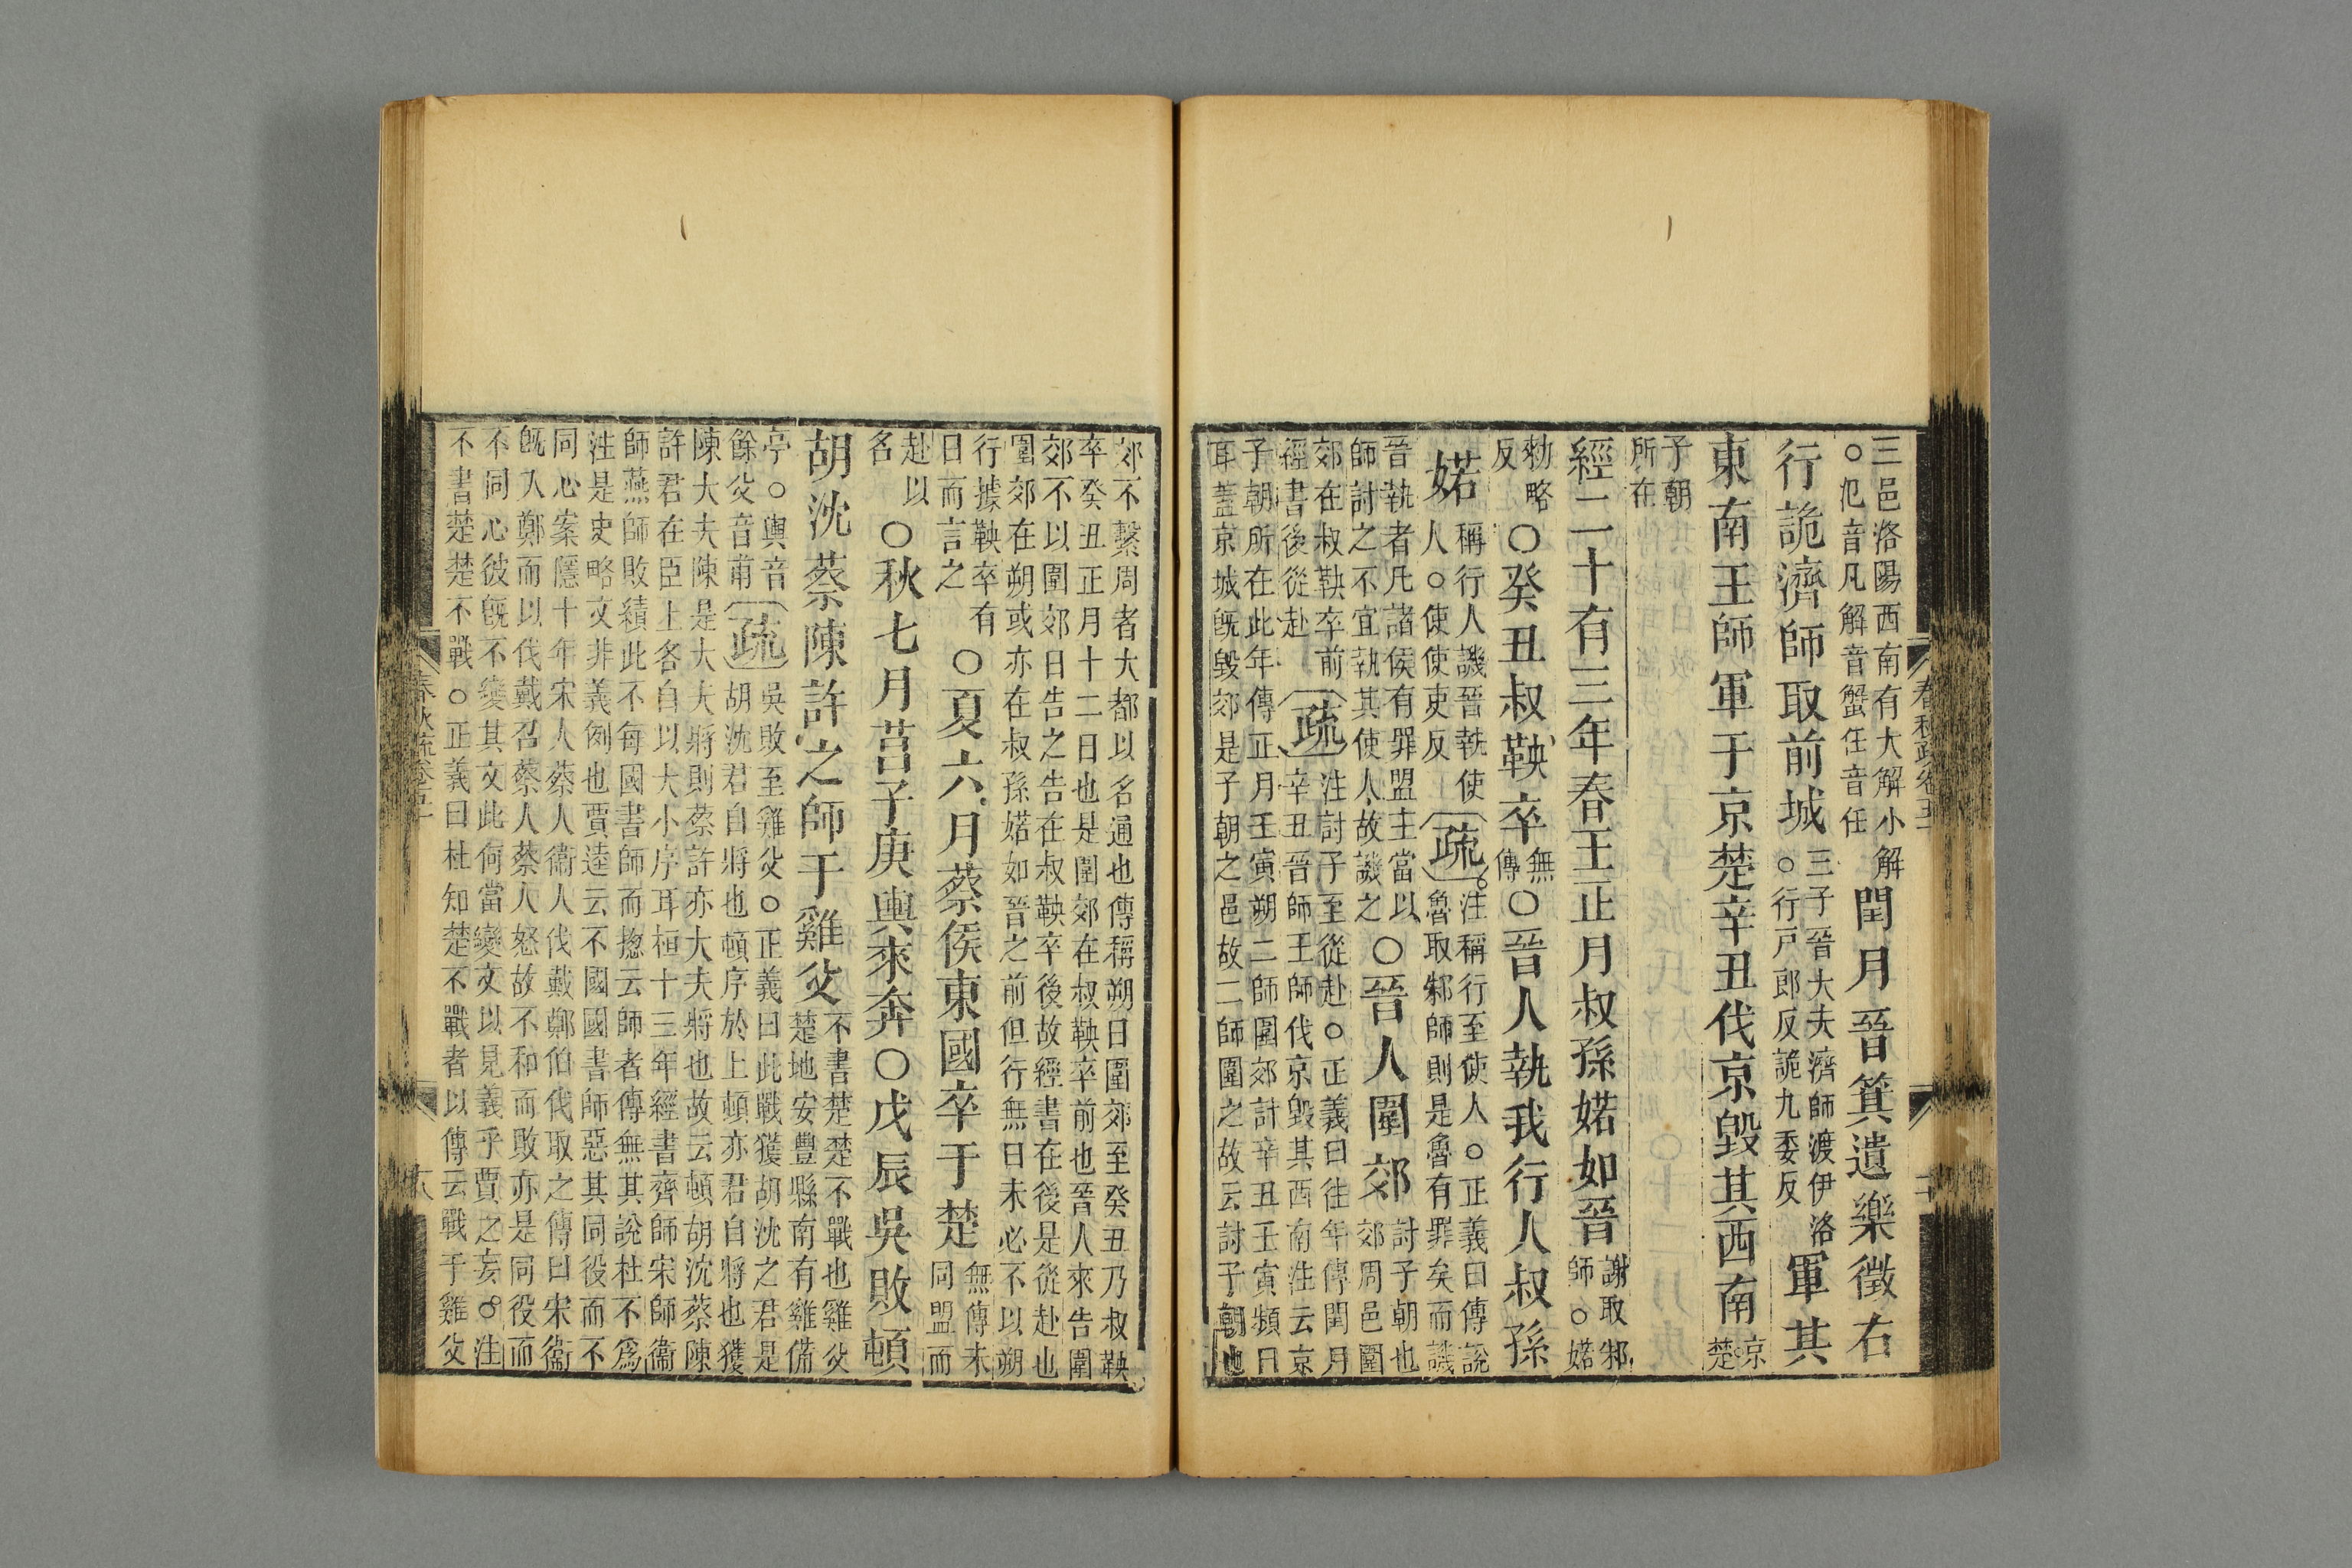 三邑洛陽西南有大解小解
○氾音凡解音蟹任音任
閏月晉箕遺樂徵右
行詭濟師取前城
三子晉大夫濟師渡伊洛
○行戸郎反詭九委反
軍其
東南王師軍于京楚辛丑伐京毀其西南
京
楚
子朝
所在
經二十有三年春王正月叔孫婼如晉
謝取邾
師○婼
勑略
反
○癸丑叔鞅卒
無
傳
○晉人執我行人叔孫
婼
稱行人譏晉執使
人○使使吏反
疏
注稱行至使人○正義曰傳說
魯取邾師則是魯有罪矣而譏
晉執者凡諸侯有罪盟主當以
師討之不宜執其使人故譏之
○晉人圍郊
討子朝也
郊周邑圍
郊在叔鞅卒前
經書後從赴
疏
注討子至從赴○正義曰往年傳閏月
辛丑晉師王師伐京毀其西南注云京
子朝所在此年傳正月壬寅朔二師圍郊計辛丑壬寅頻日
耳蓋京城既毀郊是子朝之邑故二師圍之故云討子朝也
春秋疏卷五十
郊不繫周者大都以名通也傳稱朔日圍郊至癸丑乃叔鞅
卒癸丑正月十二日也是圍郊在叔鞅卒前也晉人來告圍
郊不以圍郊日告之告在叔鞅卒後故經書在後是從赴也
圍郊在朔或亦在叔孫婼如晉之前但行無日未必不以朔
行據鞅卒有
日而言之
○夏六月蔡侯東國卒于楚
無傳未
同盟而
赴以
名
○秋七月莒子庚輿來奔○戊辰吳敗頓
胡沈蔡陳許之師于雞父
不書楚楚不戰也雞父
楚地安豐縣南有雞備
亭○輿音
餘父音甫
疏
吳敗至雞父○正義曰此戰獲胡沈之君是
胡沈君自將也頓序於上頓亦君自將也獲
陳大夫陳是大夫將則蔡許亦大夫將也故云頓胡沈蔡陳
許君在臣上各自以大小序耳桓十三年經書齊師宋師衞
師燕師敗績此不每國書師而揔云師者傳無其說杜不爲
注是史略文非義例也賈逵云不國國書師惡其同役而不
同心案隱十年宋人蔡人衞人伐戴鄭伯伐取之傳曰宋衞
既入鄭而以伐戴召蔡人蔡人怒故不和而敗亦是同役而
不同心彼既不變其文此何當變文以見義乎賈之妄○注
不書楚楚不戰○正義曰杜知楚不戰者以傳云戰于雞父